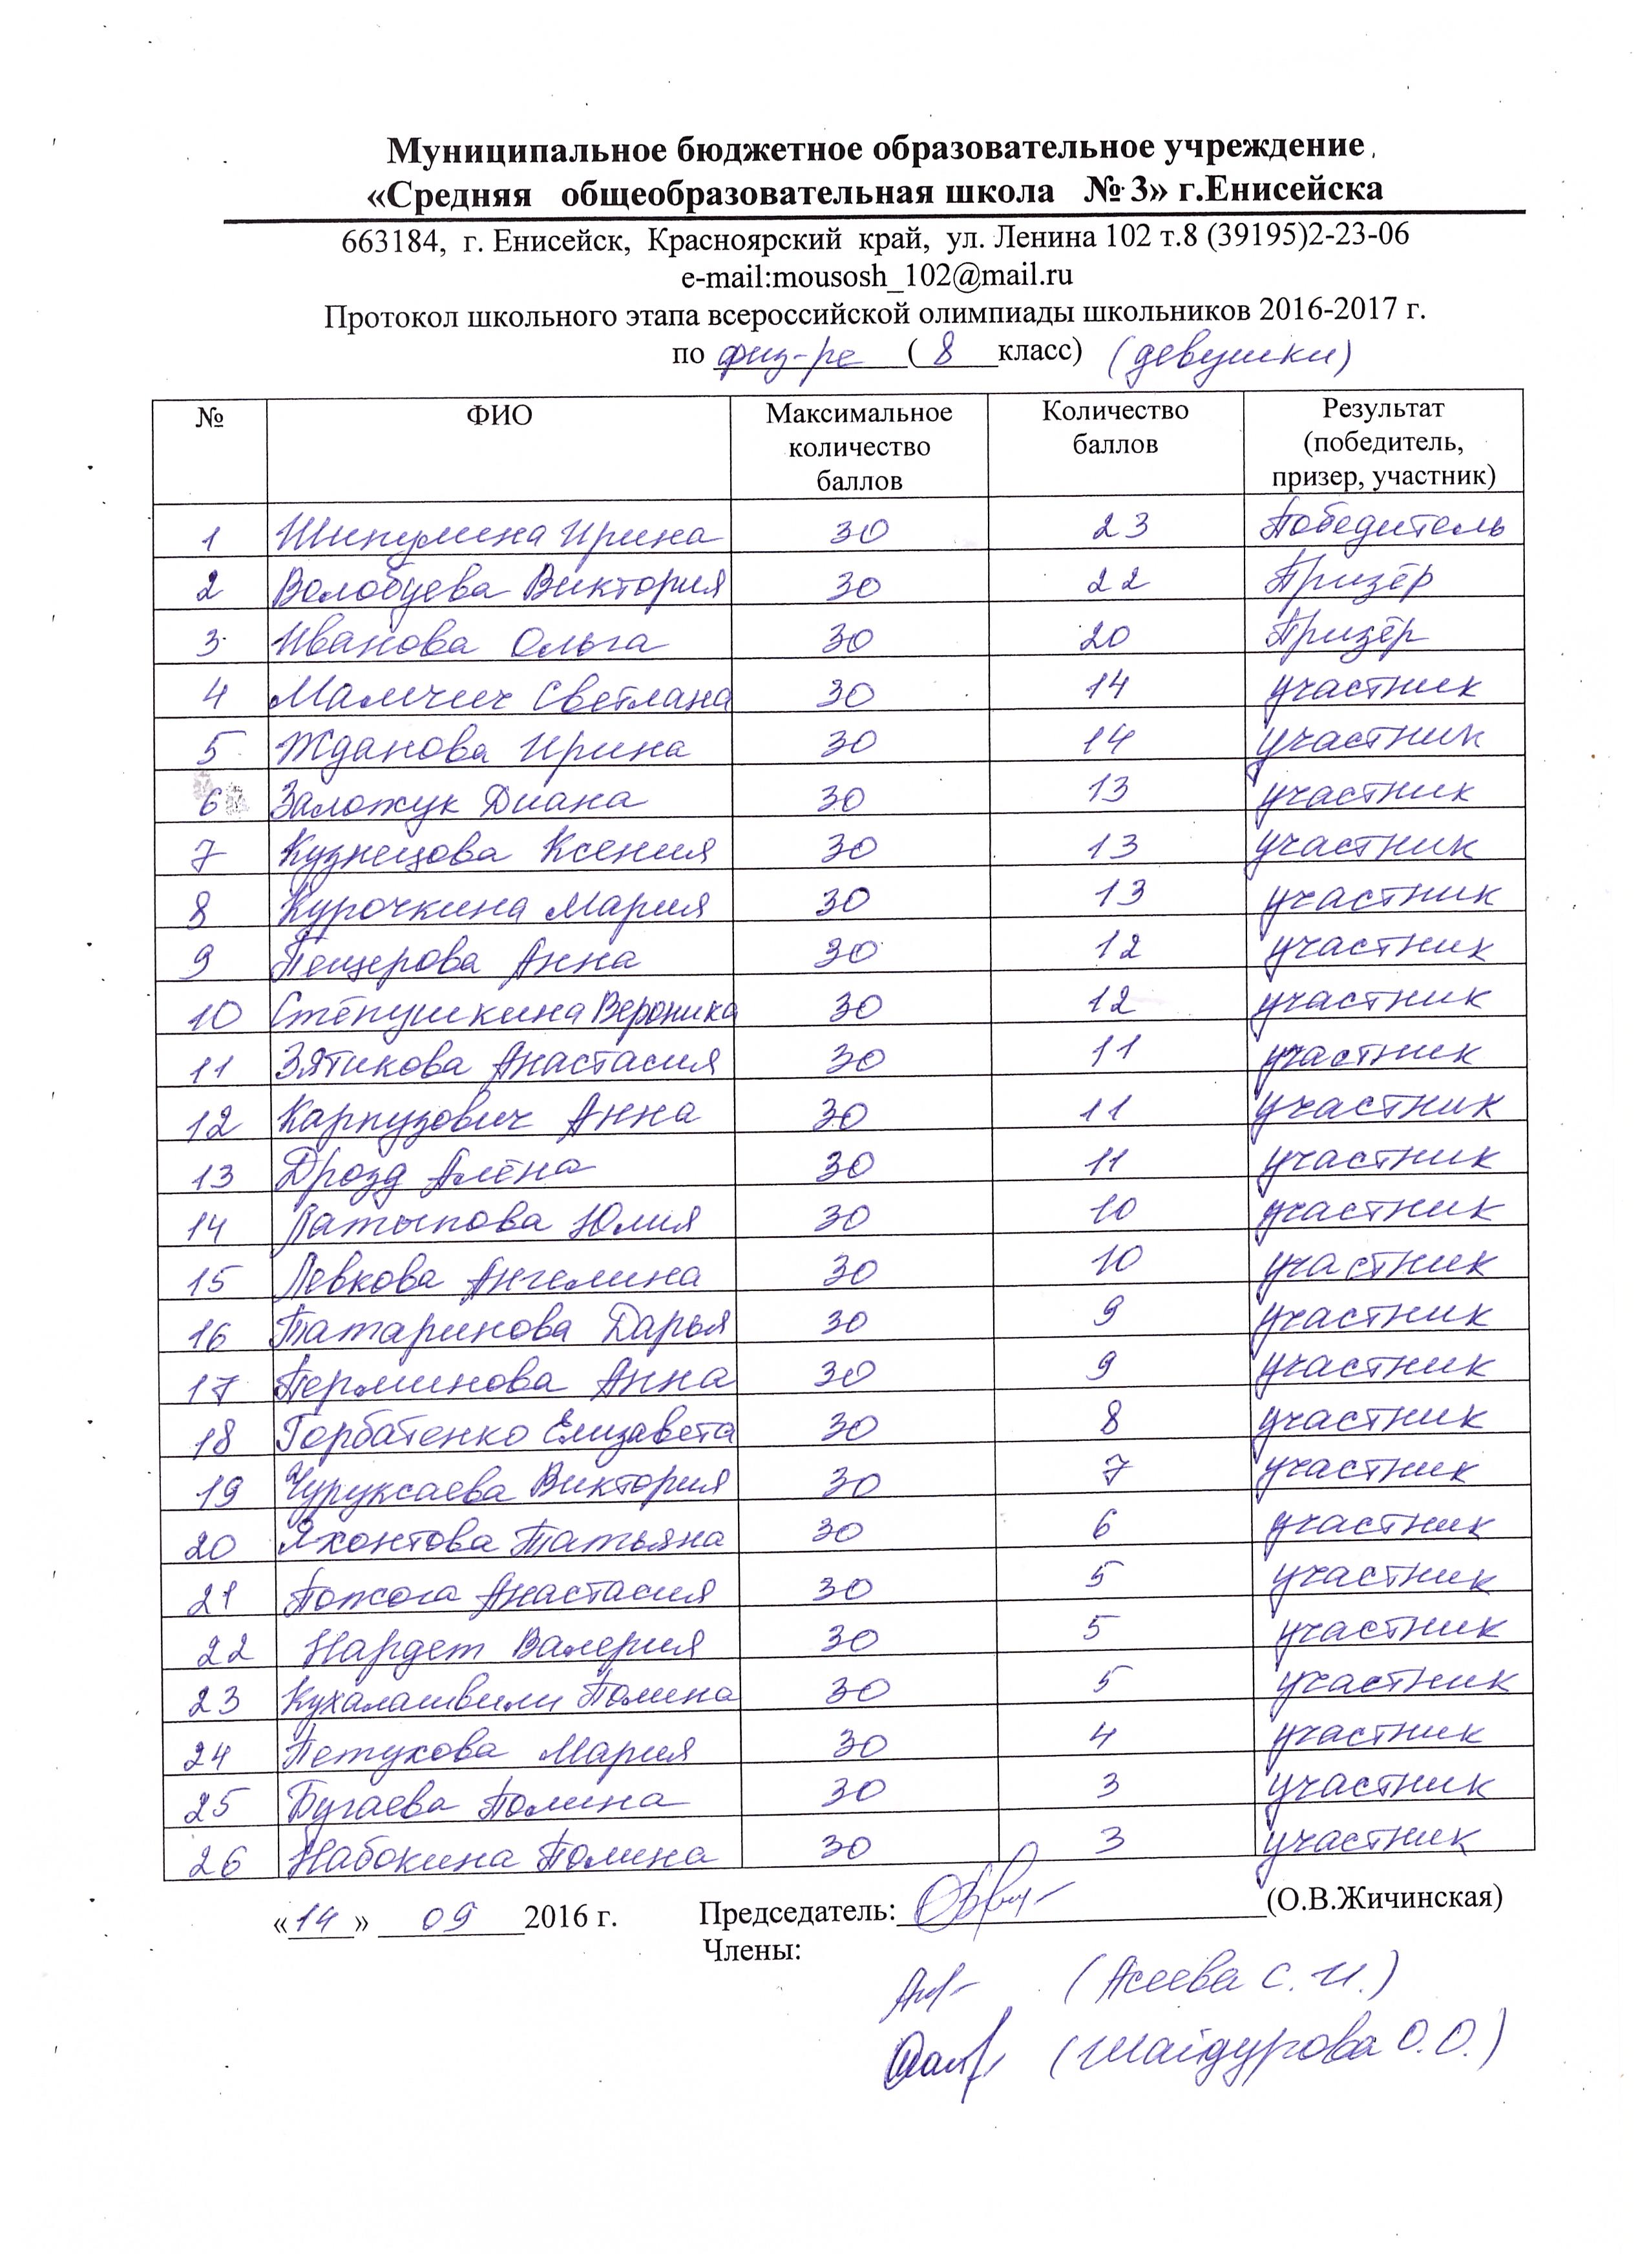 Муниципальное бюджетное образовательное учреждение
«Средняя общеобразовательная школа № 3» г.Енисейска
663184, г. Енисейск, Красноярский край, ул. Ленина 102 т.8 (39195)2-23-06
e-mail:mousosh_102@mail.ru
Протокол школьного этапа всероссийской олимпиады школьников 2016-2017 г.
по физ-ре (8 класс) (девушки)
№ ФИО Максимальное количество баллов Количество баллов Результат (победитель, призер, участник)
1 Шипулина Ирина 30 23 Победитель
2 Волобуева Виктория 30 22 Призёр
3 Иванова Ольга 30 20 Призёр
4 Мамчич Светлана 30 14 участник
5 Жданова Ирина 30 14 участник
6 Заложук Диана 30 13 участник
7 Кузнецова Ксения 30 13 участник
8 Курочкина Мария 30 13 участник
9 Пещерова Анна 30 12 участник
10 Стёпушкина Вероника 30 12 участник
11 Зятикова Анастасия 30 11 участник
12 Карпузович Анна 30 11 участник
13 Дрозд Алёна 30 11 участник
14 Латыпова Юлия 30 10 участник
15 Левкова Ангелина 30 10 участник
16 Татаринова Дарья 30 9 участник
17 Перминова Анна 30 9 участник
18 Горбатенко Елизавета 30 8 участник
19 Чуруксаева Виктория 30 7 участник
20 Яхонтова Татьяна 30 6 участник
21 Пожога Анастасия 30 5 участник
22 Нардет Валерия 30 5 участник
23 Кухалашвили Полина 30 5 участник
24 Петухова Мария 30 4 участник
25 Бугаева Полина 30 3 участник
26 Набокина Полина 30 3 участник
«14» 09 2016 г. Председатель: (О.В.Жичинская)
Члены:
(Асеева С. И.)
(Шайдурова О. О.)